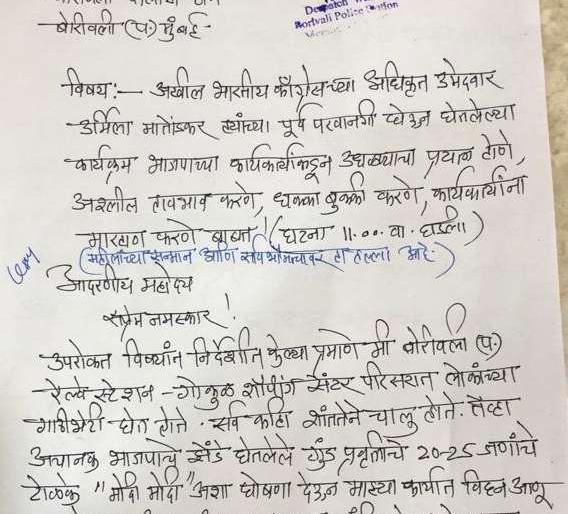 बोरीवली (प.) मुंबई -
Despatch
Borivali Police Station
विषय :- अखील भारतीय काँग्रेसच्या अधिकृत उमेदवार
उर्मिला मातोंडकर ह्यांच्या पूर्व परवानगी घेऊन घेतलेल्या
कार्यक्रम भाजपाच्या कार्यकर्त्यांकडून उधळण्याचा प्रयत्न होणे,
अश्लील हावभाव करणे, धक्का बुक्की करणे, कार्यकर्त्यांना
मारहाण करणे बाबत ! (घटना ११.०० वा. घडली)
(महीलांच्या सन्मान आणि हा हल्ला आहे.)
आदरणीय महोदय
सप्रेम नमस्कार !
उपरोक्त विषयांत निर्देशीत केल्या प्रमाणे मी बोरीवली (प.)
रेल्वे स्टेशन - गोकुळ शॉपींग सेंटर परिसरात लोकांच्या
गाठीभेटी घेत होते. सर्व काही शांततेने चालु होते. तेव्हा
अचानक भाजपाचे झेंडे घेतलेले गुंड प्रवृत्तीचे 20-25 जणांचे
टोळके "मोदी मोदी" अशा घोषणा देऊन माझ्या कार्यात विघ्न आणू